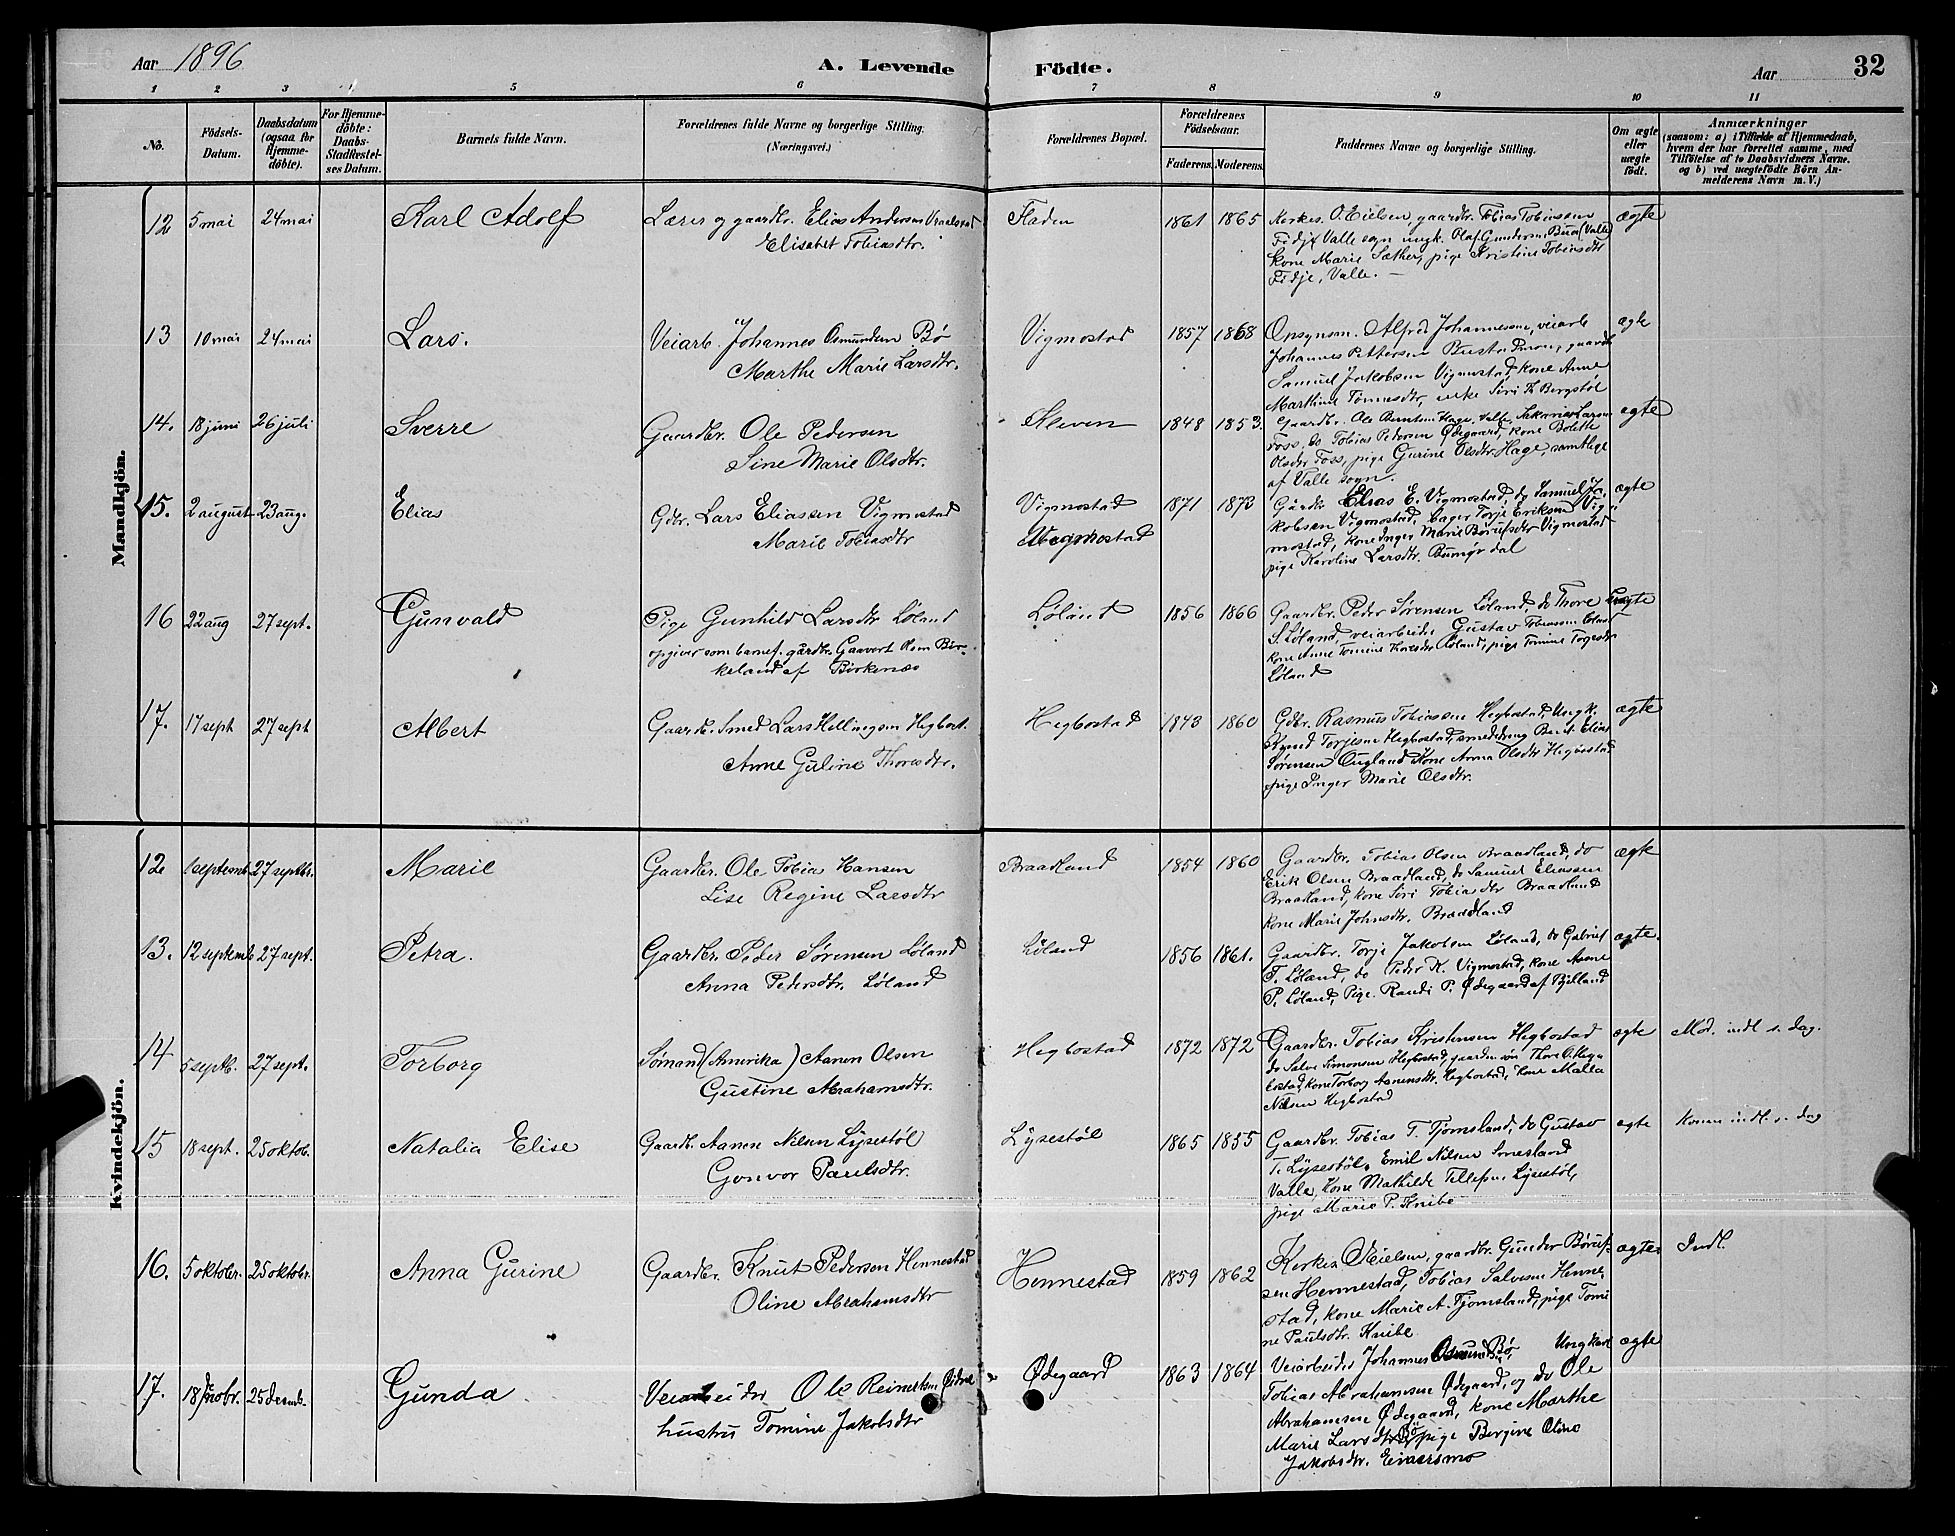 Aar 1896
A. Levende Födte.
Aar 32
1 2 3 4 5 6 7 8 9 10 11
No.
Födsels-
Datum.
Daabsdatum
(ogsaa for
Hjemme-
döbte).
For Hjemme-
döbte:
Daabs-
Stadfæstel-
ses Datum.
Barnets fulde Navn.
Forældrenes fulde Navne og borgerlige Stilling.
(Næringsvei.)
Forældrenes Bopæl.
Forældrenes
Födselsaar.
Faderens. Moderens.
Faddernes Navne og borgerlige Stilling.
Om ægte
eller
uægte
födt.
Anmærkninger
(saasom: a) i Tilfælde af Hjemmedaab,
hvem der har forrettet samme, med
Tilföielse af to Daabsvidners Navne.
og b) ved uægtefödte Börn An-
melderens Navn m. V.)
Mandkjön.
12 5 mai 24 mai Karl Adolf
Lærer og gaardbr. Elias Andersen
Elisabet Tobiasdtr.
Fladen 1861 1865
Kirkes. O. Eielsen, gaardbr. Tobias Tobiassen
Fidje Valle sogn ungk. Olaf Gundersen Buen (Valle)
kone Marie Sæther, pige Kristine Tobiasdtr
Fidje, Valle. —
ægte
13 10 mai 24 mai Lars.
Veiarb. Johannes Osmundsen Bø
Marthe Marie Larsdtr.
Vigmostad 1857 1868
Opsynsm. Alfred Johannessen, veiarb
Johannes Pettersen
Samuel Jakobsen Vigmostad, kone Anne
Marthine Tønnesdtr, enke Siri Bergstøl
ægte
14. 18 juni 26 juli Sverre
Gaardbr. Ole Pedersen
Sine Marie Olsdtr.
Kleven 1848 1853.
Gaardbr. Ole Berntsen Hage, Valle, Sakarias Larsen
Foss, do Tobias Pedersen Ødegaard, kone Bolette
Olsdtr Foss, pige Gurine Olsdtr Hage, samtlige
af Valle sogn.
ægte
15. 2 august 23 aug. Elias
Gdbr. Lars Eliassen Vigmostad
Marie Tobiasdtr
Vigmostad
Vegmostad
1871 1873
Gårdbr Elias E. Vigmostad, do Samuel Ja-
kobsen Vigmostad, Torje Eriksen Vig-
mostad, kone Inger Marie Børufsdtr Vigmostad
pige Karoline Larsdtr.
ægte
16 22 aug 27 sept. Gunvald
Pige Gunhild Larsdtr Løland
opgiver som barnef. gårdbr. Olsen Bir-
keland af Birkenæs
Løland 1856 1866
Gaardbr. Peder Sørensen Løland, do Thore
S. Løland, veiarbeider Gustav Tobiassen Løland
kone Anne Tomine Løland, pige Tomine Torjesdtr
Løland
uægte
17. 17 sept 27 sept Albert
Gaardbr. Smed Lars Hellingsen Hegbost.
Anne Guline Thoresdtr.
Hegbostad 1843 1860
Gdbr. Rasmus Tobiassen Hegbostad, Ungk.
Knud Torjesen Hegbostad, smededreng Bent Elias
Sørensen Augland, Kone Anna Olsdtr Hegbostad
pige Inger Marie Olsdtr.
ægte
Kvindekjön.
12 1 septemb 27 septbr. Marie
Gaardbr. Ole Tobias Hansen
Lise Regine Larsdtr
Braadland 1854 1860
Gaardbr. Tobias Olsen Braadland, do
Erik Olsen Braadland, do Samuel Eliassen
Braadland, kone Siri Tobiasdtr Braadland
kone Marie Johnsdtr. Braadland
ægte
13. 12 septemb 27 sept. Petra.
Gaardbr. Peder Sørensen Løland
Anna Pedersdtr. Løland
Løland 1856 1861.
Gaardbr. Torje Jakobsen Løland, do Gabriel
T. Løland, do Peder K. Vigmostad, kone Anne
P. Løland, Pige. Randi P. Ødegaard af Bjelland
ægte.
14 5 septb. 27 sept. Torborg
Sømand (Amerika) Aanen Olsen
Gustine Abrahamsdtr.
Hegbostad 1872 1872
Gaardbr. Tobias Kristensen Hegbostad
do Salve Simonsen Hegbostad, gaardm. søn Thore O. Heg-
bostad, kone Torborg Aanensdtr. Hegbostad, kone Malla
Nilsen Hegbostad
ægte Mod. indl s. dag.
15 18 sept. 25 oktob. Natalia Elise
Gaardb. Aanen Nilsen Lysestøl
Gonvor Paulsdtr.
Lysestøl 1865 1855
Gaardbr. Tobias T. Tjomsland, do Gustav
T. Lysestøl, Emil Nilsen
Valle, Kone Mathilde Lysestøl,
pige Marie P. Knibe
ægte Konen indl. s. dag
16. 5 oktober. 25 oktobr. Anna Gurine
Gaardbr. Knut Pedersen Hennestad
Oline Abrahamsdtr
Hennestad 1859 1862
Kirkes. O. Eielsen, gaardbr. Gunder Børuf-
sen Hennestad, Tobias Salvesen Henne-
stad, kone Marie A. Tjomsland, pige Tomi-
ne Paulsdtr. Knibe
ægte Indl.
17. 18 novbr. 25 decemb. Gunda
Veiarbeider Ole Reinertsen
hustru Tomine Jakobsdtr
Ødegaard 1863 1864
Veiarbeider Johannes Osmunds. Bø, Ungkarl
Tobias Abrahamsen Ødegaard, og do Ole
Abrahamsen Ødegaard, kone Marthe
Marie Larsdtr Bø pige Bergine Oline
Jakobsdtr. Eivaersmo
ægte